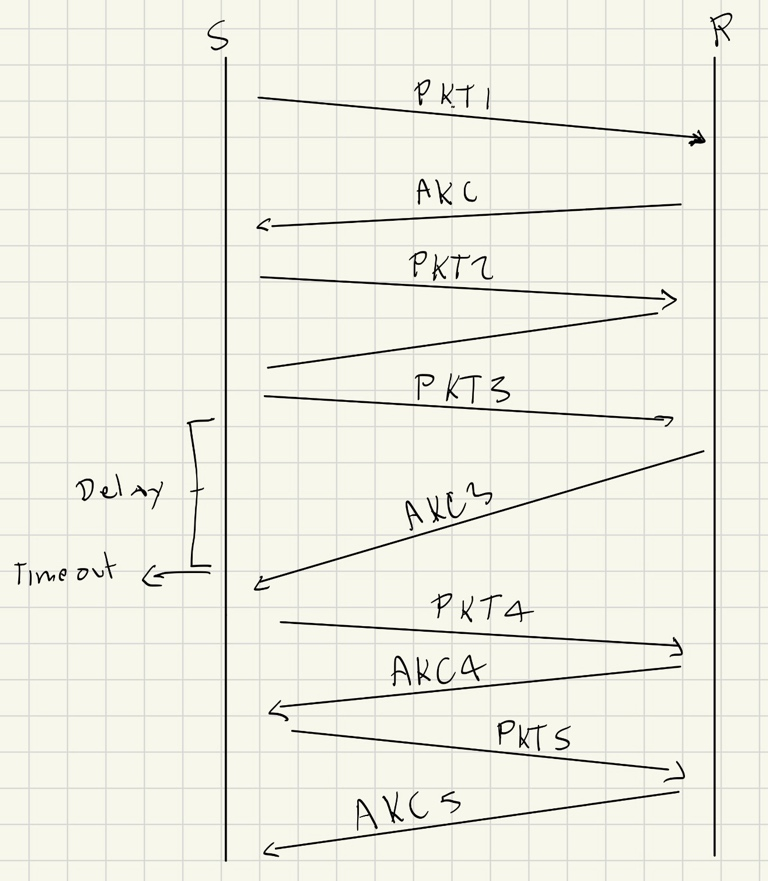 S
R
PKT1
AKC
PKT2
PKT3
Delay
AKC3
Timeout
PKT4
AKC4
PKT5
AKC5